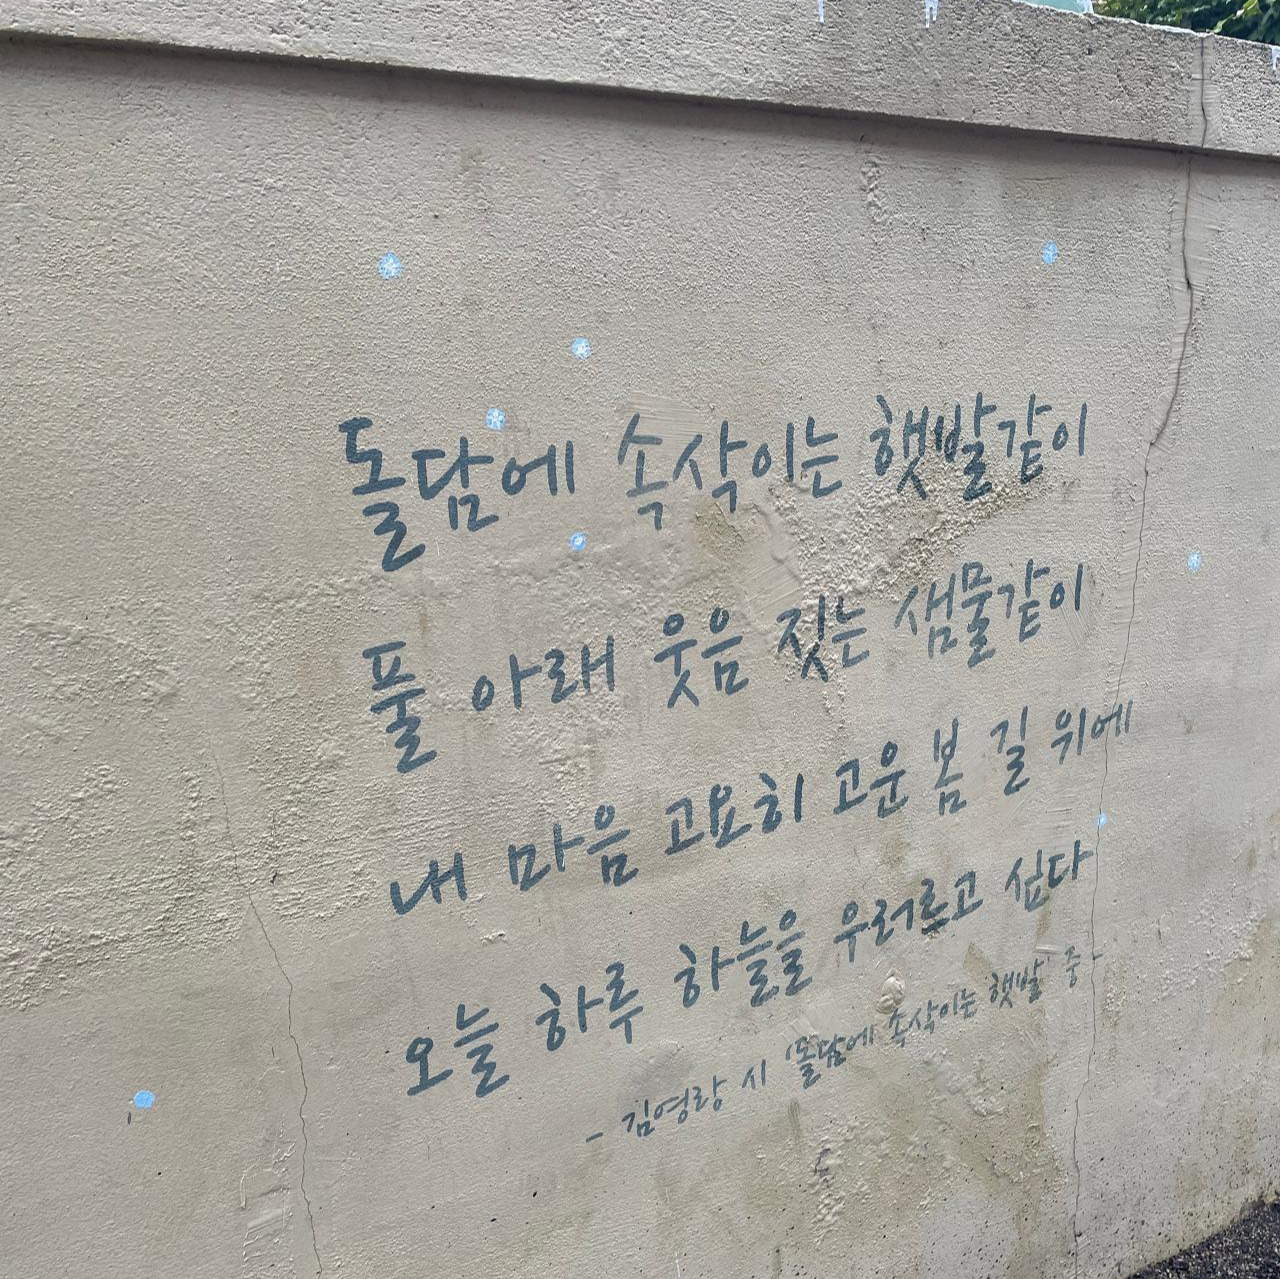 돌담에 속삭이는 햇발같이
풀 아래 웃음 짓는 샘물같이
내 마음 고요히 고운 봄 길 위에
오늘 하루 하늘을 우러르고 싶다
- 김영랑 시 '돌담에 속삭이는 햇발' 중 -